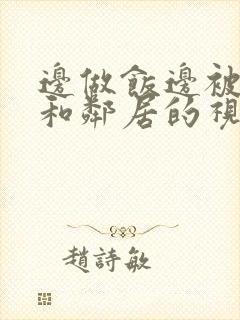 邊做飯邊被
和鄰居的視
趙詩敏